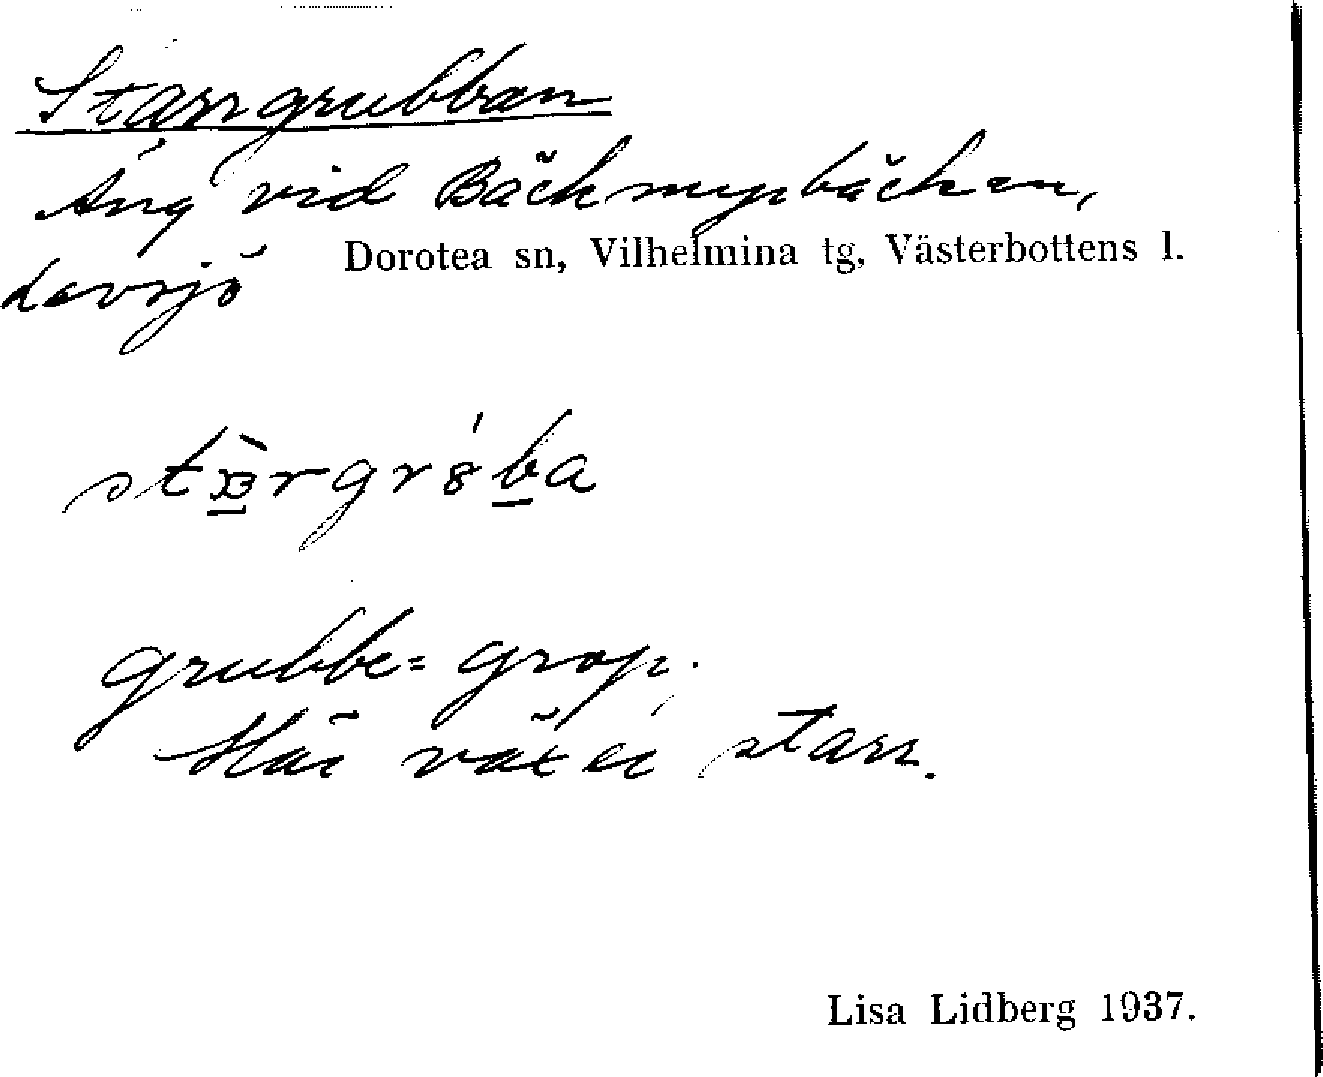 Starrgrubban
Äng vid Bäckmyrbäcken,
Lavsjö
Dorotea sn, Vilhelmina tg, Västerbottens l.
grubbe = grop.
Här växer starr.
Lisa Lidberg 1937.